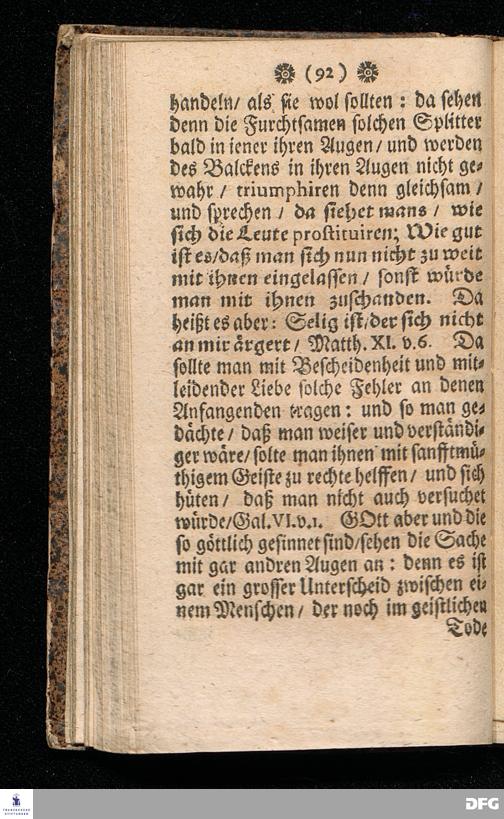 (92)
handeln/ als sie wol sollten: da sehen
denn die Furchtsamen solchen Splitter
bald in jener ihren Augen/ und werden
des Balckens in ihren Augen nicht ge-
wahr/ triumphiren denn gleichsam/
und sprechen/ da siehet mans/ wie
sich die Leute prostituiren; Wie gut
ist es/daß man sich nun nicht zu weit
mit ihnen eingelassen/ sonst würde
man mit ihnen zuschanden. Da
heißt es aber: Selig ist/der sich nicht
an mir ärgert/ Matth. XI. v. 6. Da
sollte man mit Bescheidenheit und mit-
leidender Liebe solche Fehler an denen
Anfangenden tragen: und so man ge-
dächte/ daß man weiser und verständi-
ger wäre/ solte man ihnen mit sanfftmü-
thigem Geiste zu rechte helffen/ und sich
hüten/ daß man nicht auch versuchet
würde/Gal. VI. v. 1. GOtt aber und die
so göttlich gesinnet sind/sehen die Sache
mit gar andren Augen an: denn es ist
gar ein grosser Unterscheid zwischen ei-
nem Menschen/ der noch im geistlichen
Tode
FRANCKESCHE
STIFTUNGEN
DFG